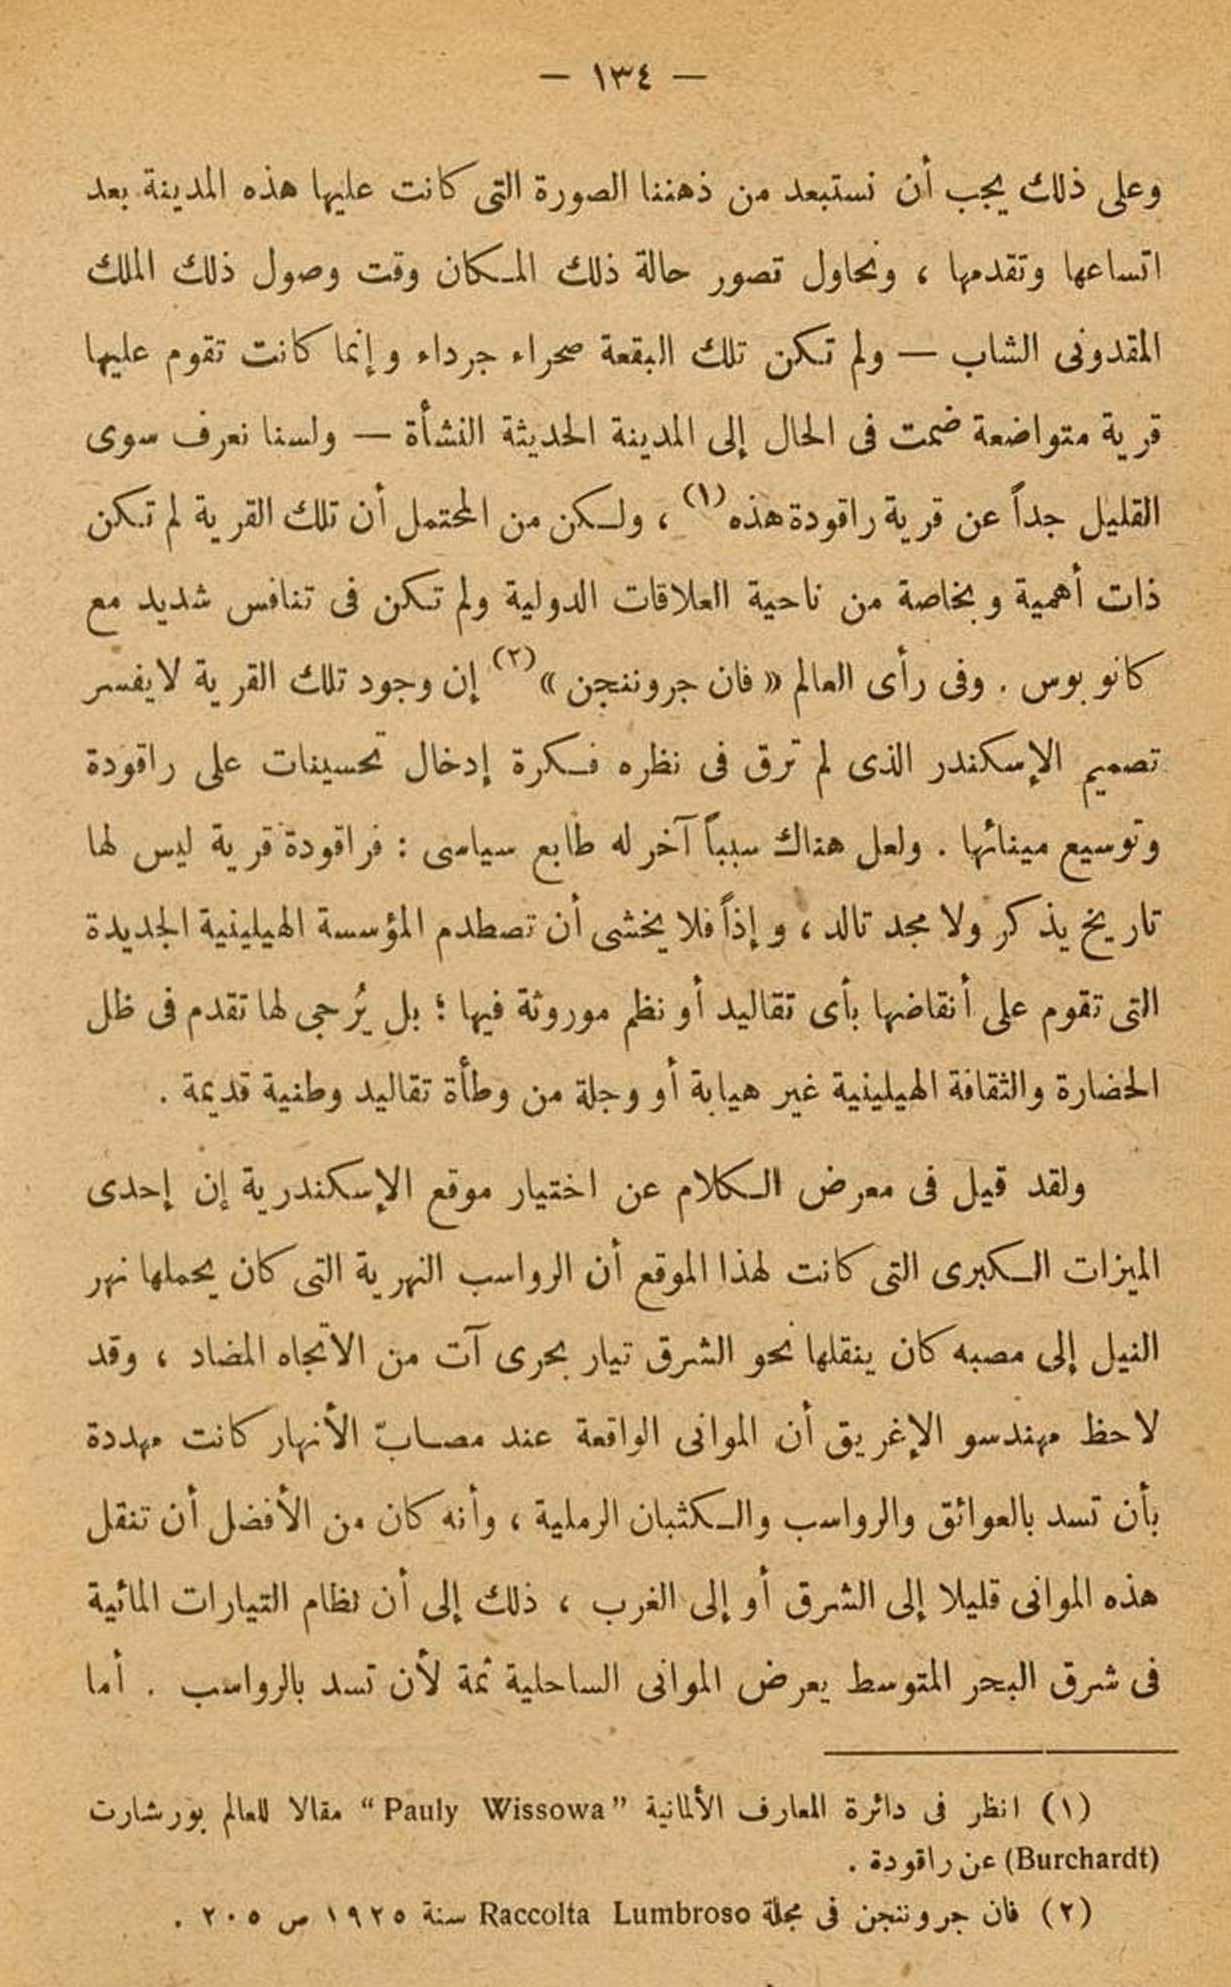 — ١٣٤ —
وعلى ذلك يجب أن نستبعد من ذهننا الصورة التى كانت عليها هذه المدينة بعد
اتساعها وتقدمها ، ونحاول تصور حالة ذلك المكان وقت وصول ذلك الملك
المقدونى الشاب — ولم تكن تلك البقعة صحراء جرداء وإنما كانت تقوم عليها
قرية متواضعة ضمت فى الحال إلى المدينة الحديثة النشأة — ولسنا نعرف سوى
القليل جداً عن قرية راقودة هذه (١) ، ولكن من المحتمل أن تلك القرية لم تكن
ذات أهمية وبخاصة من ناحية العلاقات الدولية ولم تكن فى تنافس شديد مع
كانوبوس . وفى رأى العالم « فان جروننجن » (٢) إن وجود تلك القرية لا يفسر
تصميم الإسكندر الذى لم ترق فى نظره فكرة إدخال تحسينات على راقودة
وتوسيع مينائها . ولعل هناك سبباً آخر له طابع سياسى : فراقودة قرية ليس لها
تاريخ يذكر ولا مجد تالد ، وإذاً فلا يخشى أن تصطدم المؤسسة الهيلينية الجديدة
التى تقوم على أنقاضها بأى تقاليد أو نظم موروثة فيها ؛ بل يُرجى لها تقدم فى ظل
الحضارة والثقافة الهيلينية غير هيابة أو وجلة من وطأة تقاليد وطنية قديمة .
ولقد قيل فى معرض الكلام عن اختيار موقع الإسكندرية إن إحدى
الميزات الكبرى التى كانت لهذا الموقع أن الرواسب النهرية التى كان يحملها نهر
النيل إلى مصبه كان ينقلها نحو الشرق تيار بحرى آت من الاتجاه المضاد ، وقد
لاحظ مهندسو الإغريق أن الموانى الواقعة عند مصابّ الأنهار كانت مهددة
بأن تسد بالعوائق والرواسب والكثبان الرملية ، وأنه كان من الأفضل أن تنقل
هذه الموانى قليلا إلى الشرق أو إلى الغرب ، ذلك إلى أن نظام التيارات المائية
فى شرق البحر المتوسط يعرض الموانى الساحلية ثمة لأن تسد بالرواسب . أما
(١) انظر فى دائرة المعارف الألمانية "Pauly Wissowa" مقالا للعالم بورشارت
(Burchardt) عن راقودة .
(٢) فان جروننجن فى مجلة Raccolta Lumbroso سنة ١٩٢٥ ص ٢٠٥ .